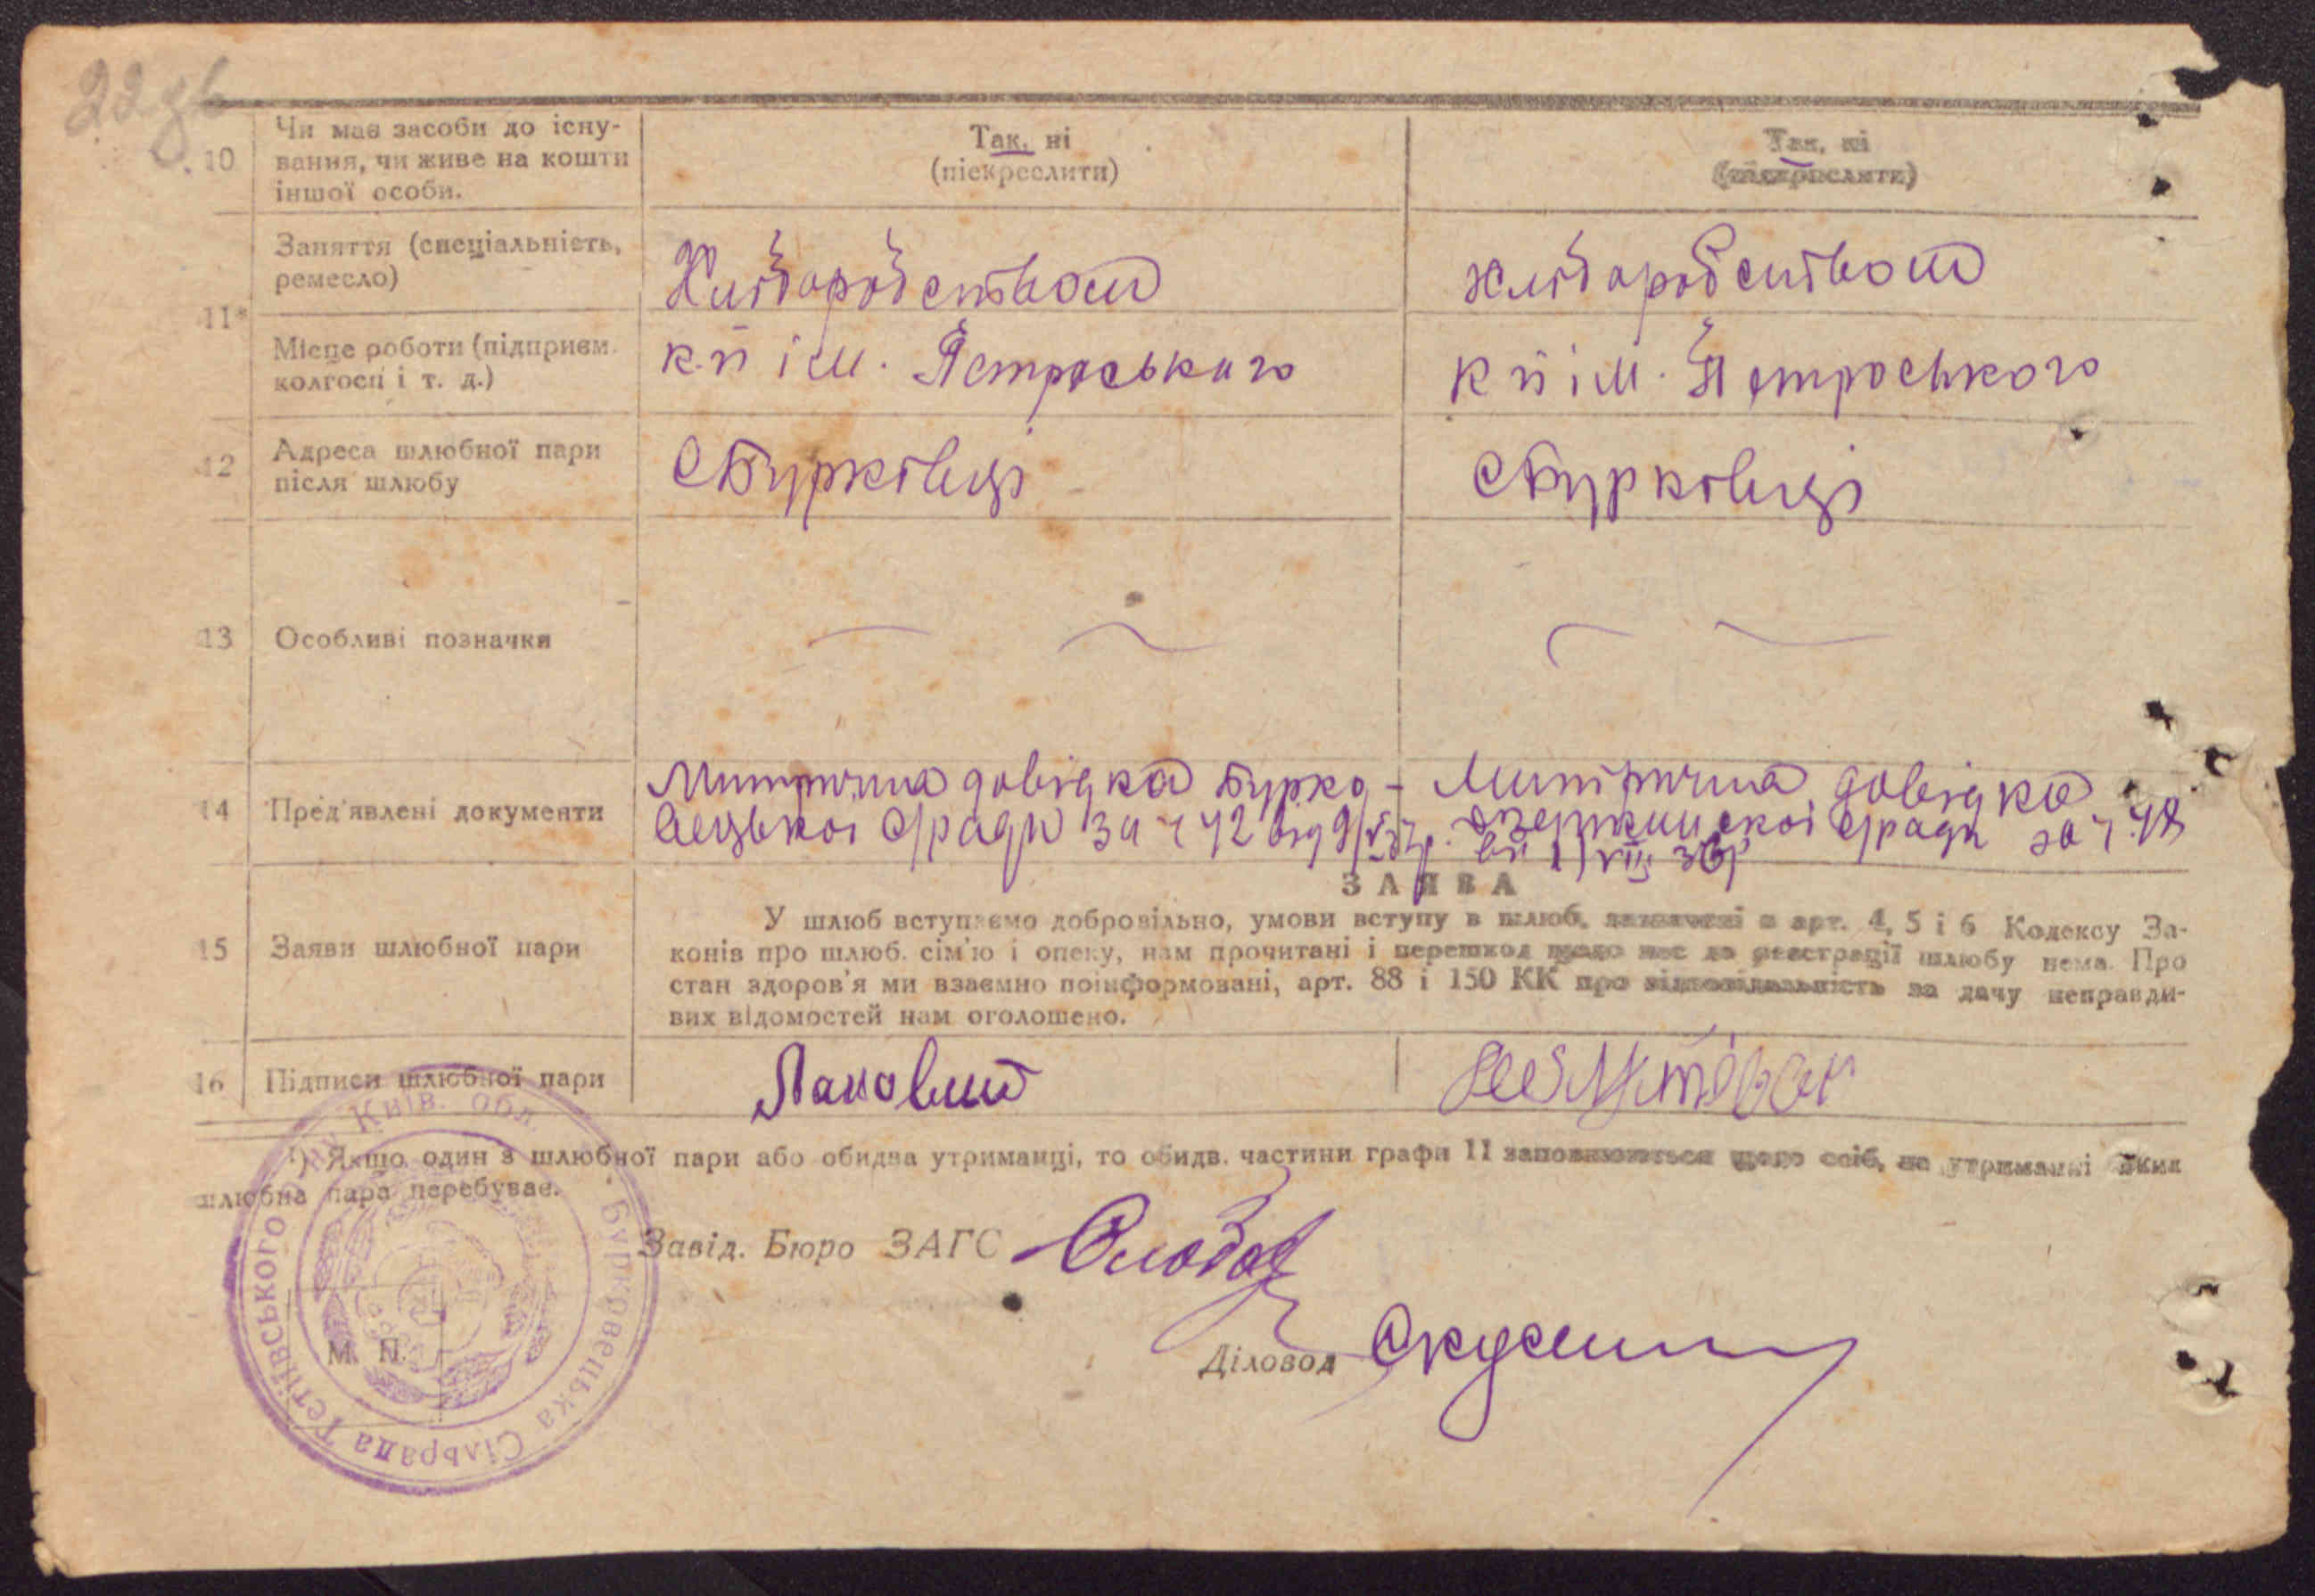 22зв
10 Чи має засоби до існу-
вання, чи живе на кошти
іншої особи.
Так, ні
(піскреслити)
Так, ні
(підкреслити)
11*
Заняття (спеціальність,
ремесло)
Хліборобством
Хліборобством
Місце роботи (підприєм.
колгосп і т. д.)
к-п ім. Петроського
к п ім. Петроського
12 Адреса шлюбної пари
після шлюбу
с Бурківці
с Бурківці
13 Особливі позначки
14 Пред'явлені документи
Митрична довідка Бурко-
вецької с/ради за ч 42 від
Митрична довідка
с/ради за ч. 48
ЗАЯВА
15 Заяви шлюбної пари
У шлюб вступаємо добровільно, умови вступу в шлюб, зазначені в арт. 4, 5 і 6 Кодексу За-
конів про шлюб. сім'ю і опеку, нам прочитані і перешкод щодо нас до реєстрації шлюбу нема. Про
стан здоров'я ми взаємно поінформовані, арт. 88 і 150 КК про відповідальність за дачу неправди-
вих відомостей нам оголошено.
16 Підписи шлюбної пари
¹) Якщо один з шлюбної пари або обидва утриманці, то обидв. частини графи 11 заповнюються щодо осіб, на утриманні яких
шлюбна пара перебуває.
Завід. Бюро ЗАГС
Діловод
М. П.
Бурковецька Сільрада Тетіївського р-ну Київ. обл.